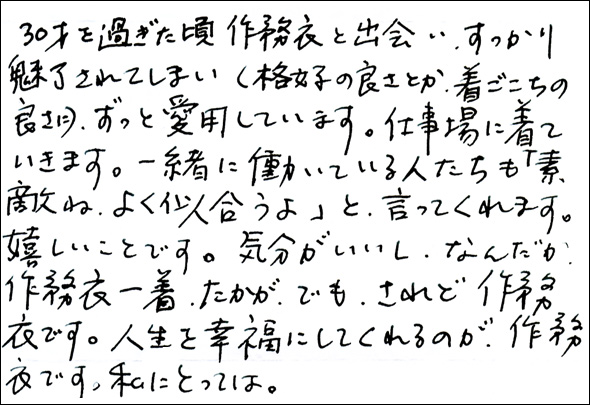 30才を過ぎた頃 作務衣と出会い、すっかり
魅了されてしまい（格好の良さとか、着ごこちの
良さに）、ずっと愛用しています。仕事場に着て
いきます。一緒に働いている人たちも「素
敵ね、よく似合うよ」と、言ってくれます。
嬉しいことです。気分がいいし、なんだか、
作務衣一着、たかが、でも、されど作務
衣です。人生を幸福にしてくれるのが、作務
衣です。私にとっては。